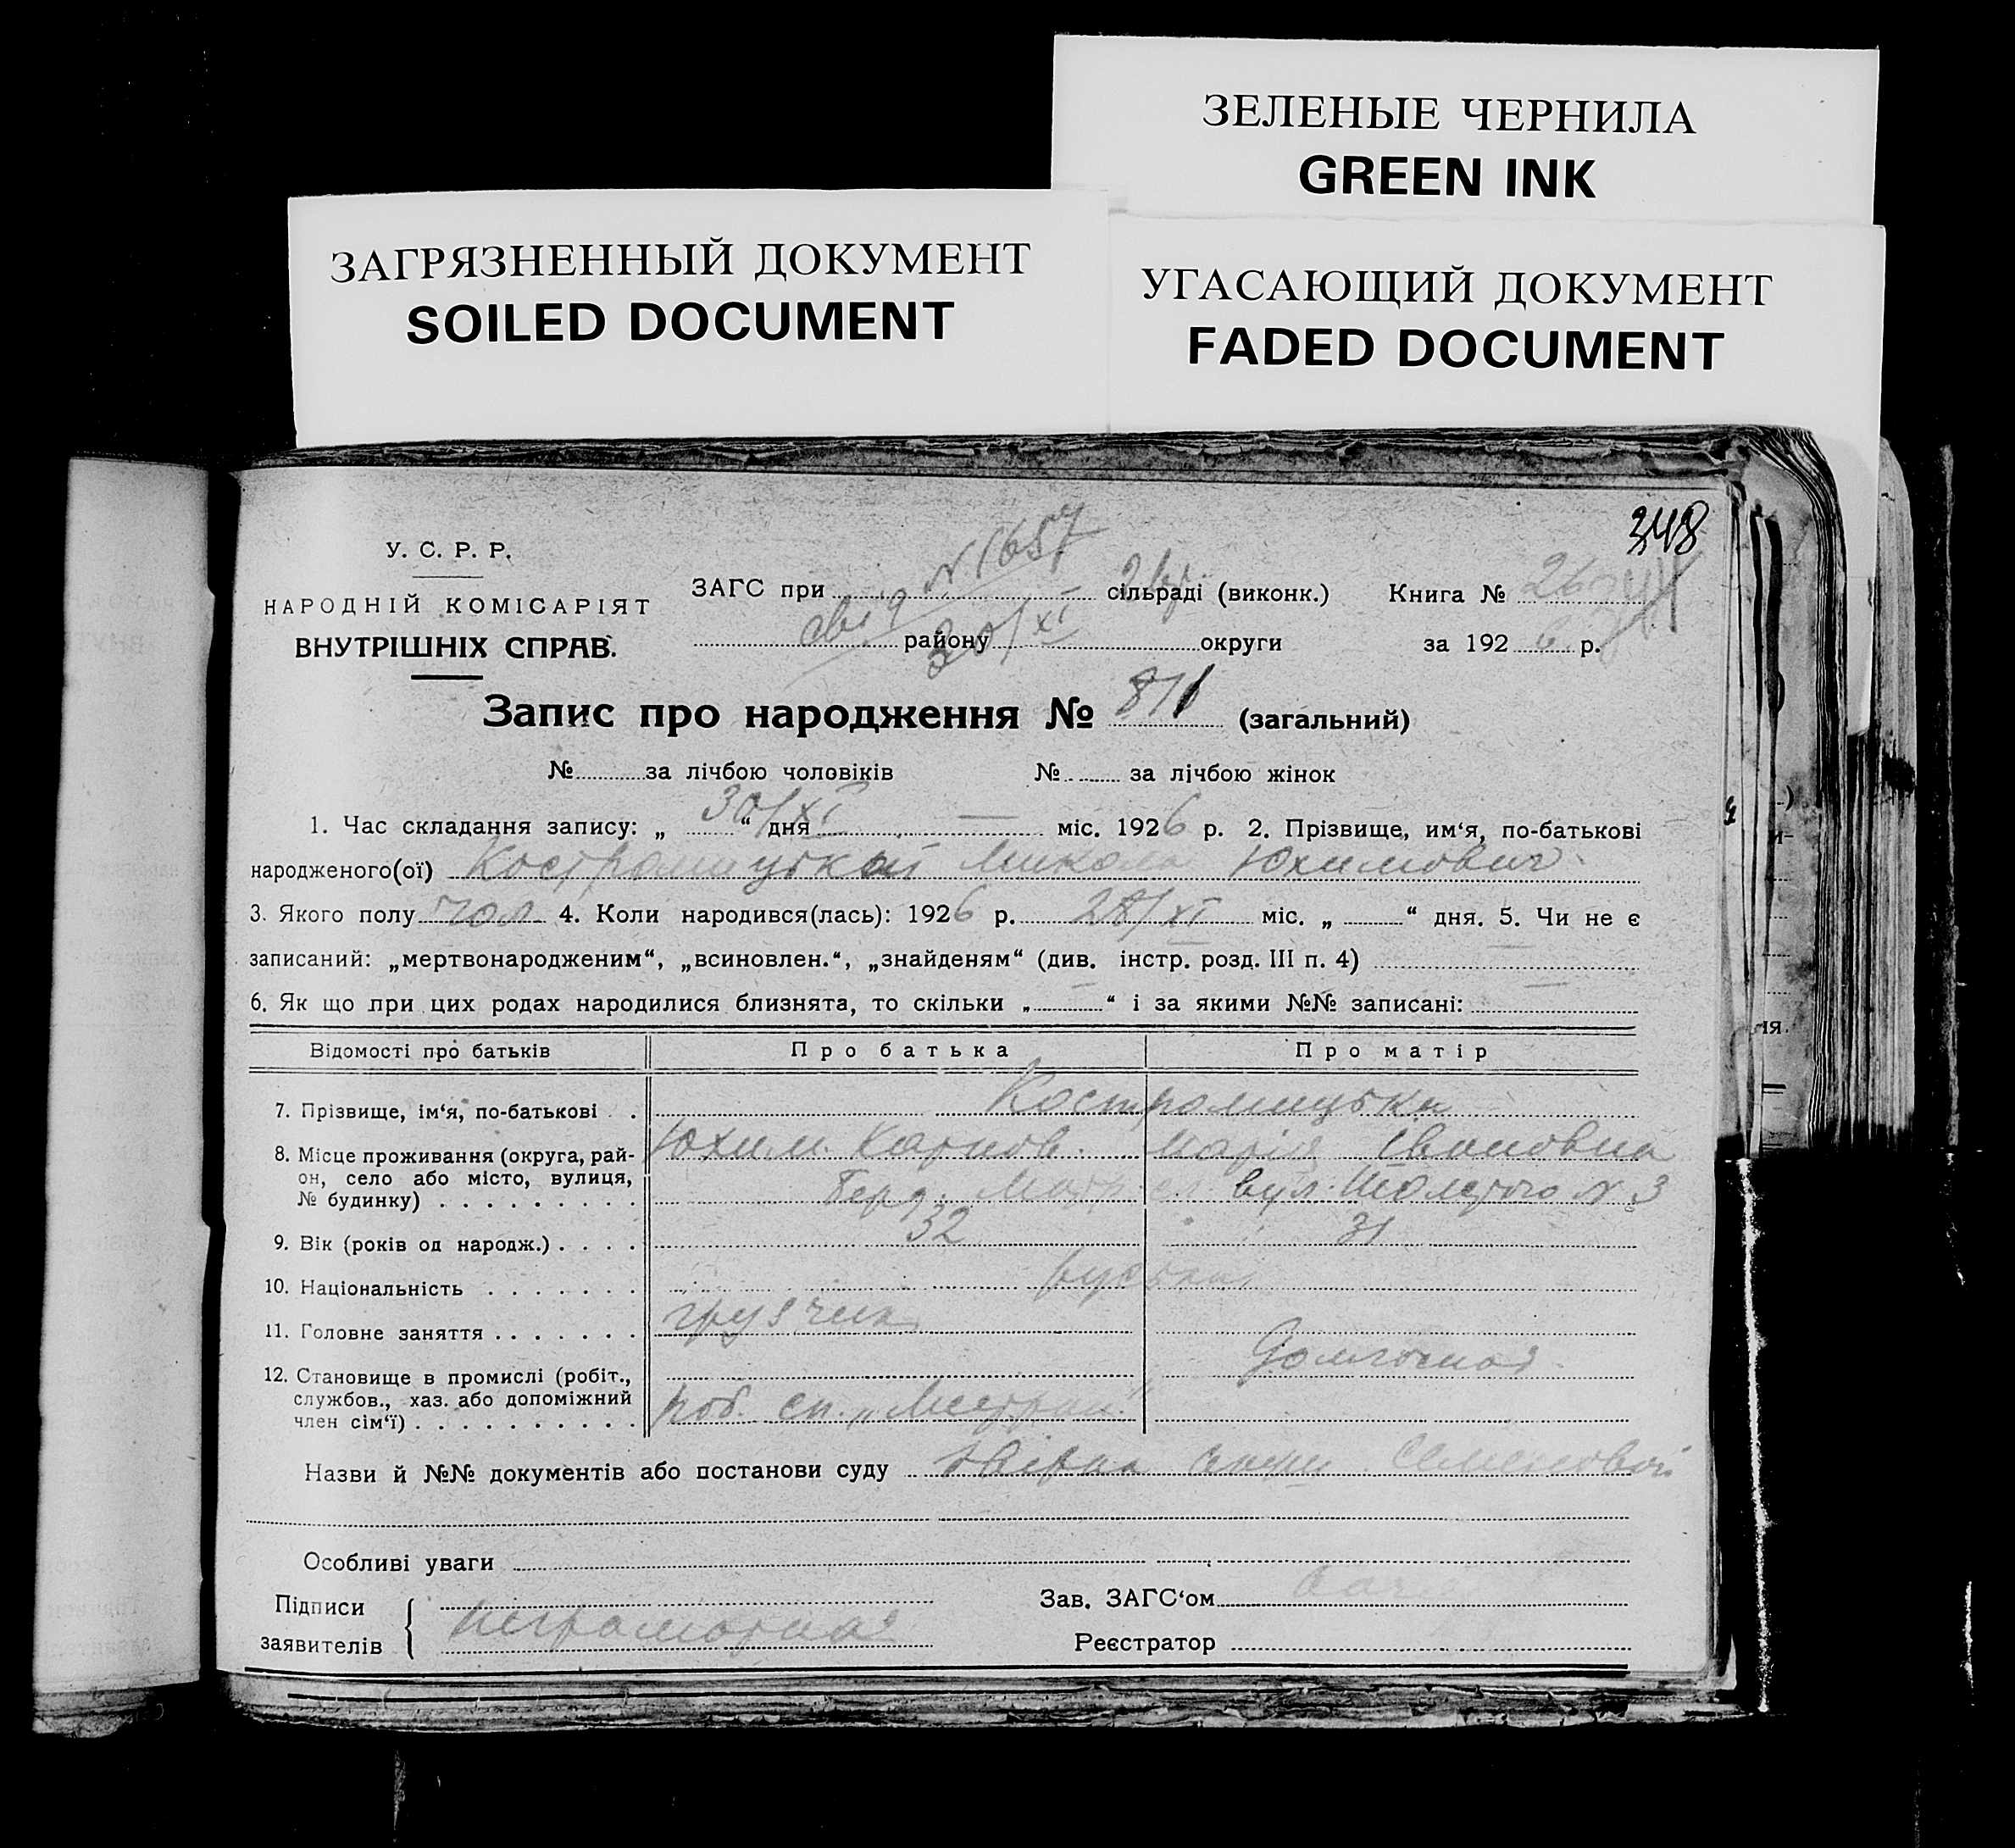 ЗЕЛЕНЫЕ ЧЕРНИЛА
GREEN INK
ЗАГРЯЗНЕННЫЙ ДОКУМЕНТ
SOILED DOCUMENT
УГАСАЮЩИЙ ДОКУМЕНТ
FADED DOCUMENT
348
У. С. Р. Р.
НАРОДНІЙ КОМІСАРІЯТ
ВНУТРІШНІХ СПРАВ.
N 1657
ЗАГС при сільраді (виконк.) Книга №
30/XI
району округи за 1926 р.
Запис про народження № 871 (загальний)
№ за лічбою чоловіків № за лічбою жінок
1. Час складання запису: „ 30/XI “ дня — міс. 1926 р. 2. Прізвище, им‘я, по-батькові
народженого(ої) Костромицький Микола Юхимович
3. Якого полу чол. 4. Коли народився(лась): 1926 р. 28/XI міс. „ “ дня. 5. Чи не є
записаний: „мертвонародженим“, „всиновлен.“, „знайденям“ (див. інстр. розд. III п. 4)
6. Як що при цих родах народилися близнята, то скільки „ “ і за якими №№ записані:
Відомості про батьків Про батька Про матір
7. Прізвище, ім‘я, по-батькові . Костромицьки
Юхим Карпов. Марія Івановна
8. Місце проживання (округа, район, село або місто, вулиця,
№ будинку) Берд. вул. Толстого N 3
9. Вік (років од народж.) 32 31
10. Національність
11. Головне заняття грузчик
Домгосп
12. Становище в промислі (робіт.,
службов., хаз. або допоміжний
член сім‘ї) роб. сп.
Назви й №№ документів або постанови суду
Особливі уваги
Підписи
заявителів неграмотна
Зав. ЗАГС‘ом
Реєстратор